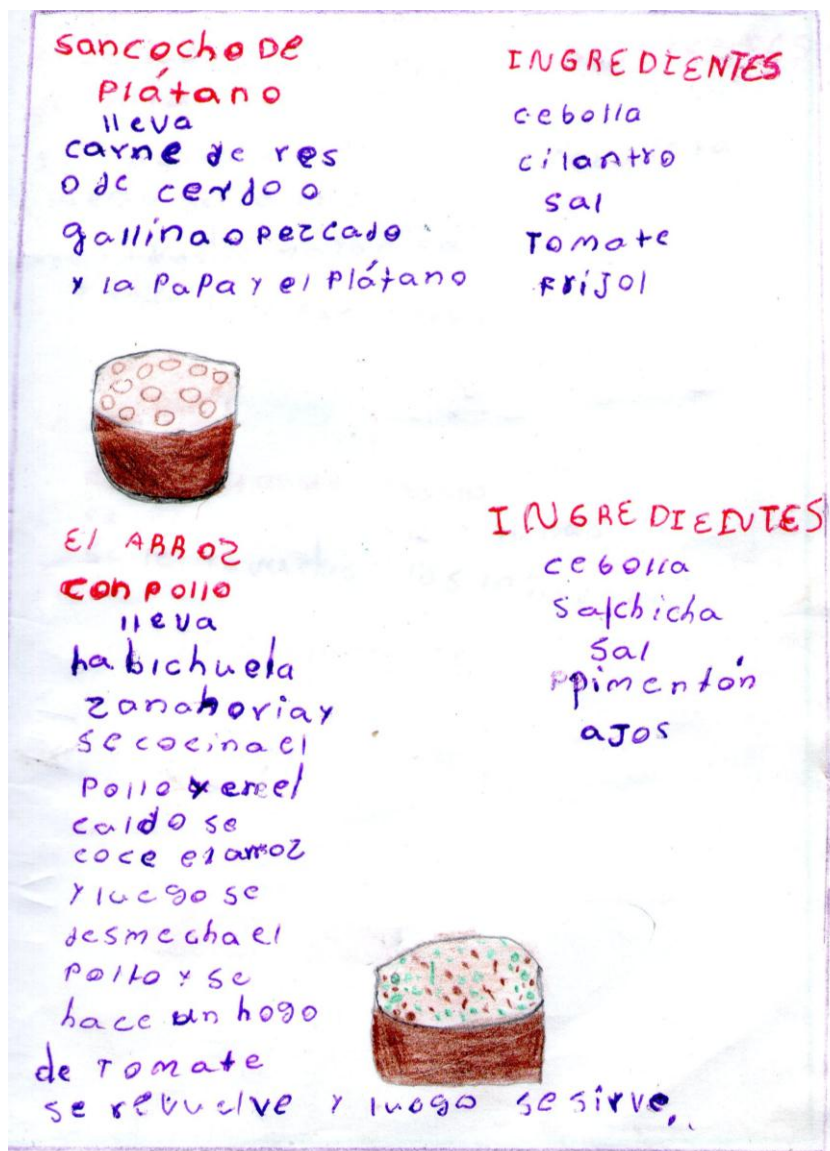 sancocho DE
Plátano
lleva
carne de res
o de cerdo o
gallina o pezcado
y la PaPa y el Plátano
INGREDIENTES
cebolla
cilantro
sal
Tomate
FriJol
El ARROZ
con pollo
lleva
habichuela
zanahoria y
se cocina el
Pollo y en el
caldo se
coce el arroz
y luego se
desmecha el
Pollo y se
hace un hogo
de Tomate
se revuelve y luogo se sirve..
INGREDIENTES
cebolla
salchicha
sal
pimentón
aJos